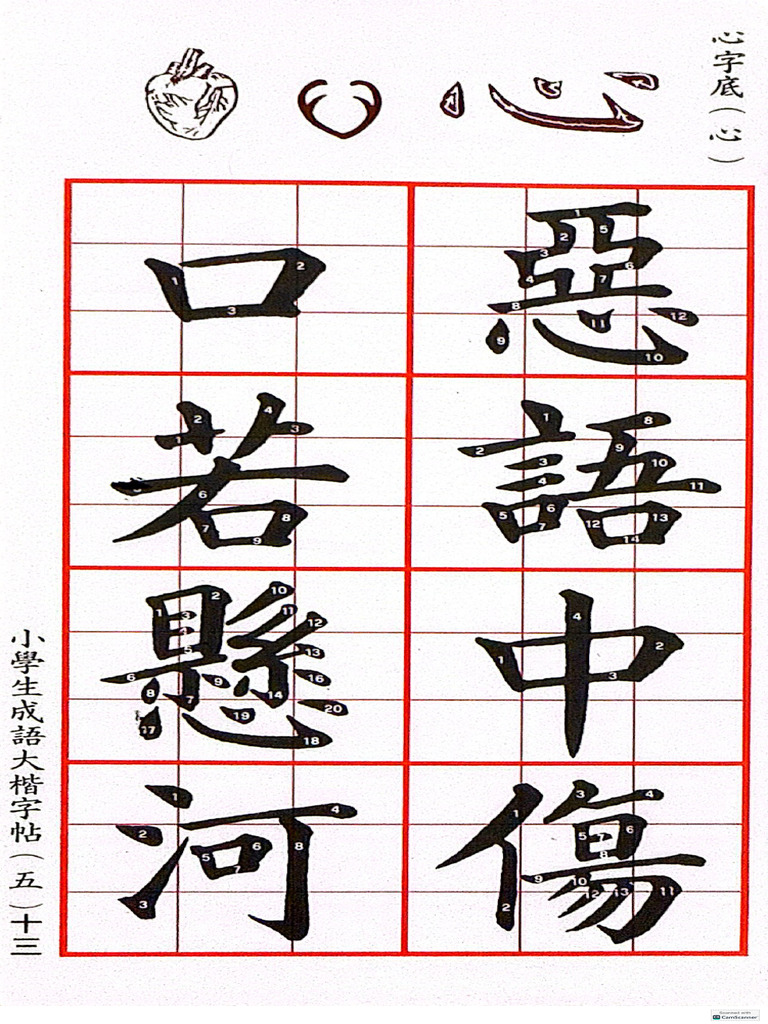 心字底（心）
心
惡語中傷
口若懸河
小學生成語大楷字帖（五）十三
Scanned with
CamScanner